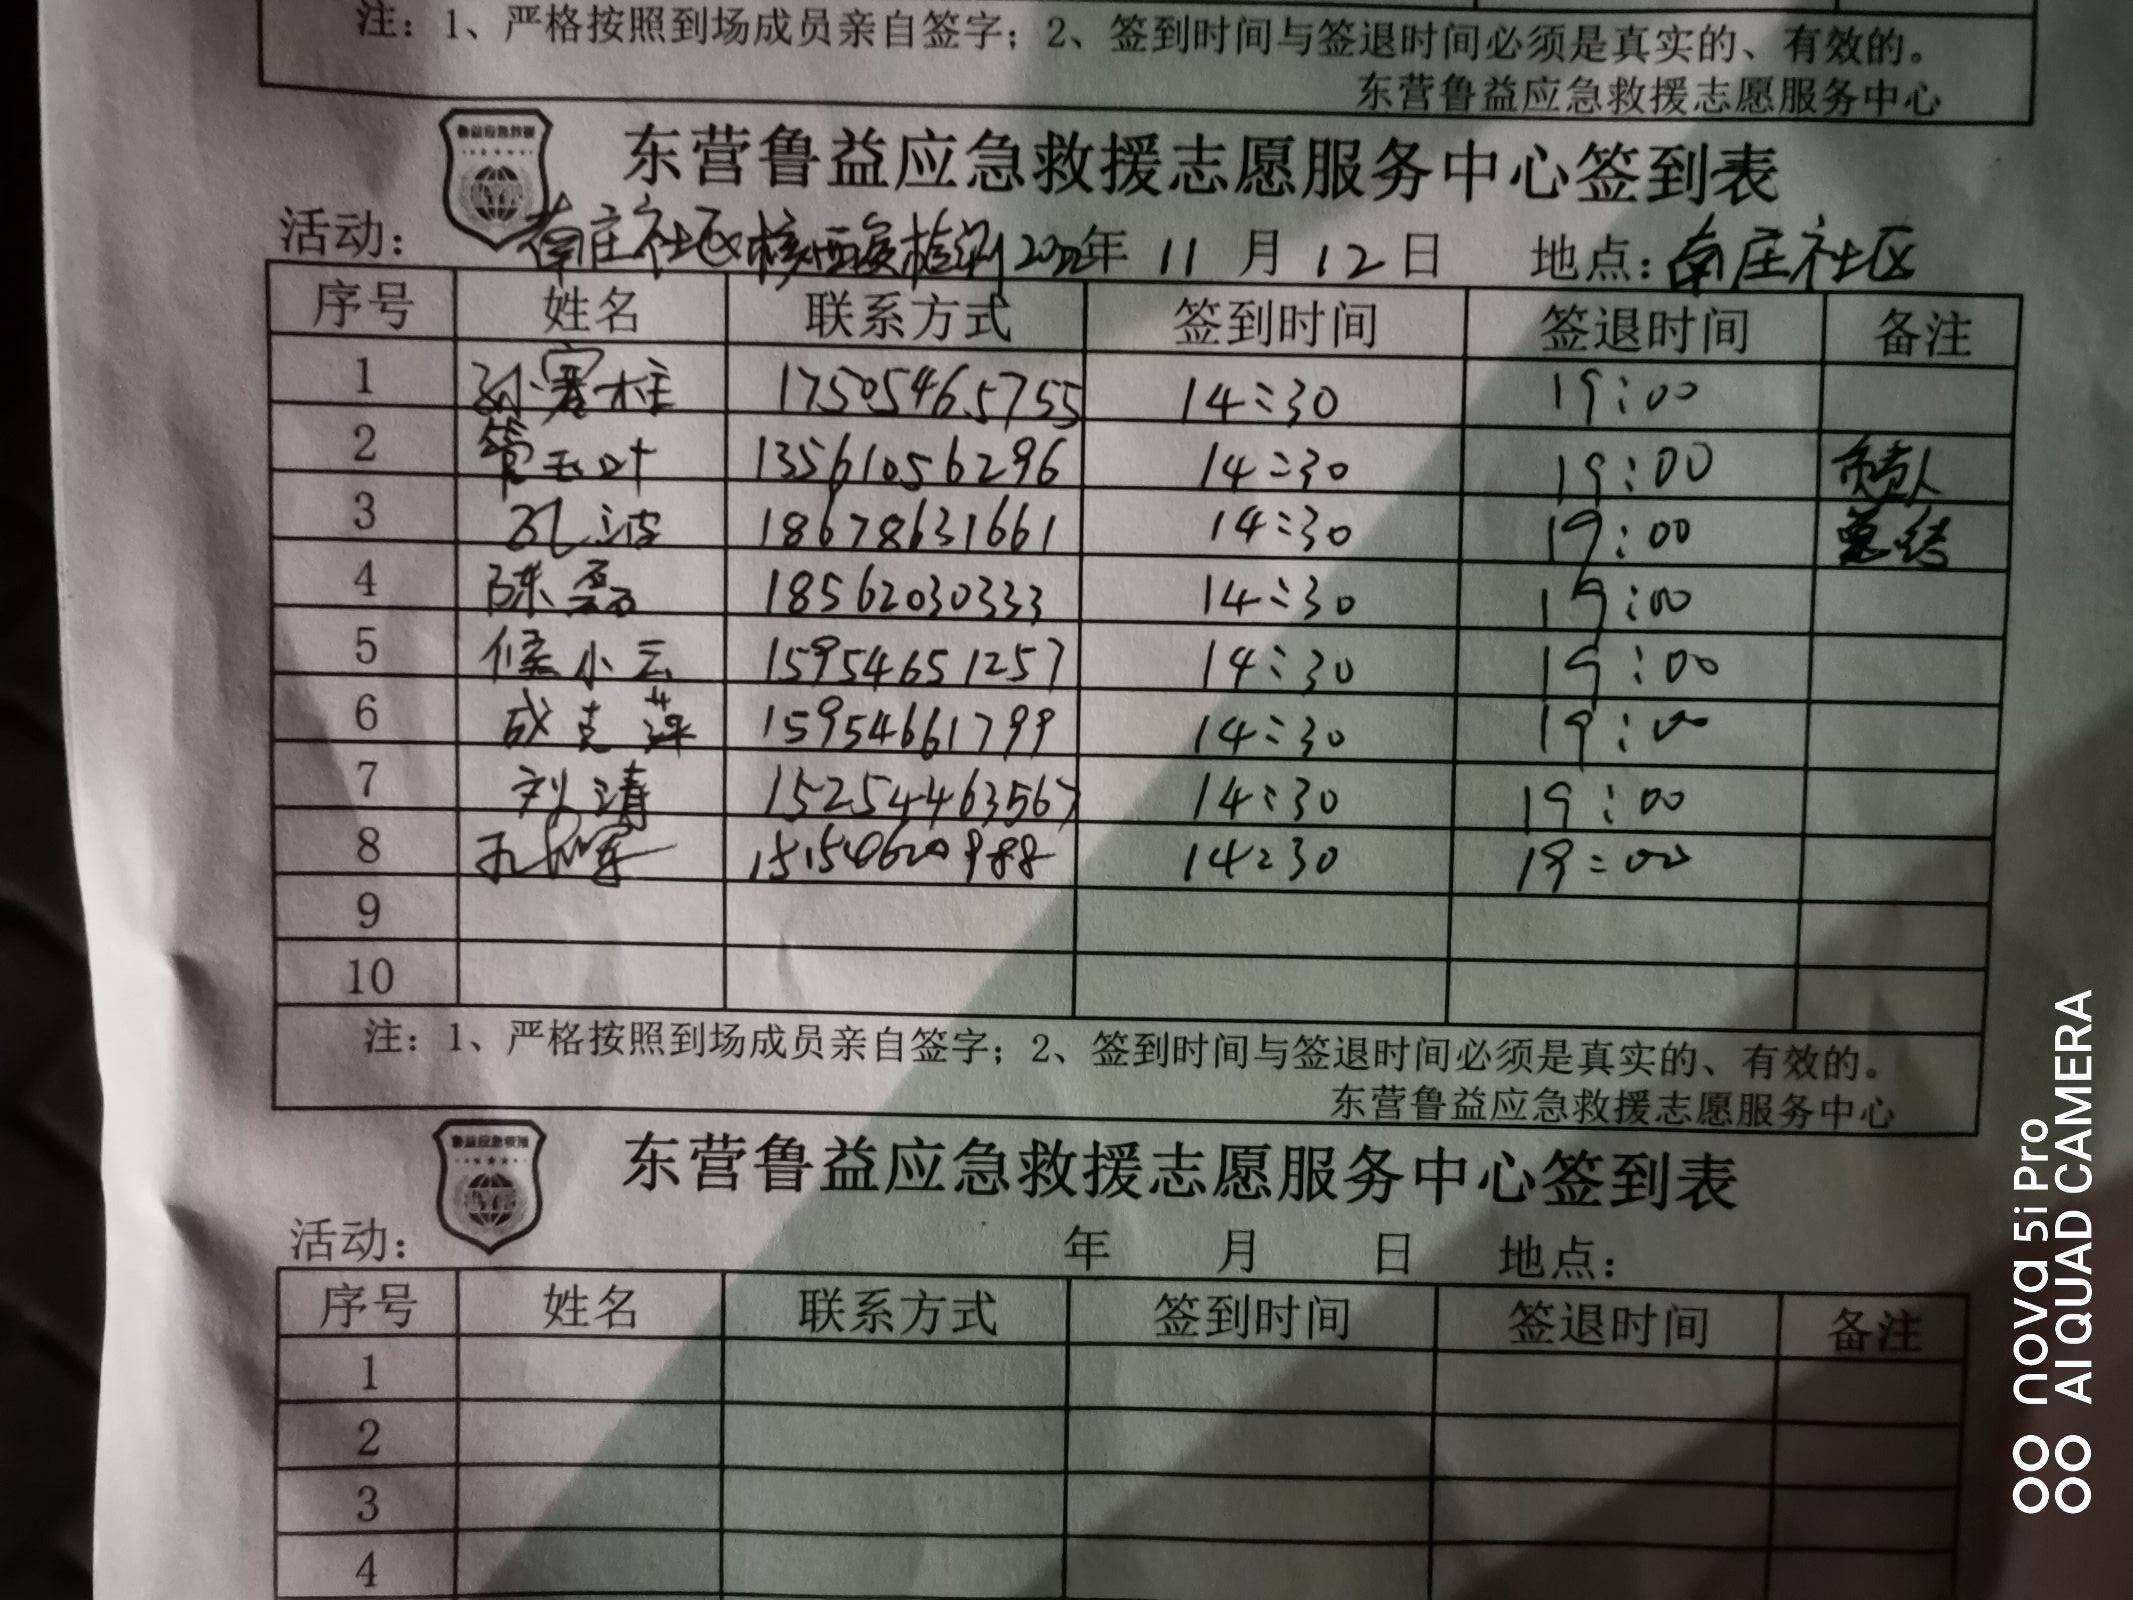 注：1、严格按照到场成员亲自签字；2、签到时间与签退时间必须是真实的、有效的。
东营鲁益应急救援志愿服务中心
鲁益应急救援
东营鲁益应急救援志愿服务中心签到表
活动： 南庄社区核酸检测 2022年 11 月 12 日 地点：南庄社区
序号 姓名 联系方式 签到时间 签退时间 备注
1 孙寒柱 17505465755 14:30 19:00
2 管玉叶 13561056296 14:30 19:00 负责人
3 孔波 18678631661 14:30 19:00 总结
4 陈磊 18562030333 14:30 19:00
5 候小云 15954651257 14:30 19:00
6 成克萍 15954661799 14:30 19:00
7 刘清 15254463567 14:30 19:00
8 14:30 19:00
9
10
注：1、严格按照到场成员亲自签字；2、签到时间与签退时间必须是真实的、有效的。
东营鲁益应急救援志愿服务中心
鲁益应急救援
东营鲁益应急救援志愿服务中心签到表
活动： 年 月 日 地点：
序号 姓名 联系方式 签到时间 签退时间 备注
1
2
3
4
nova 5i Pro
AI QUAD CAMERA